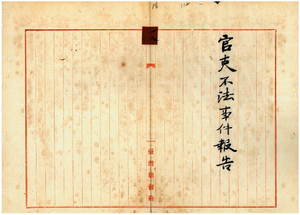 官吏不法事件報告